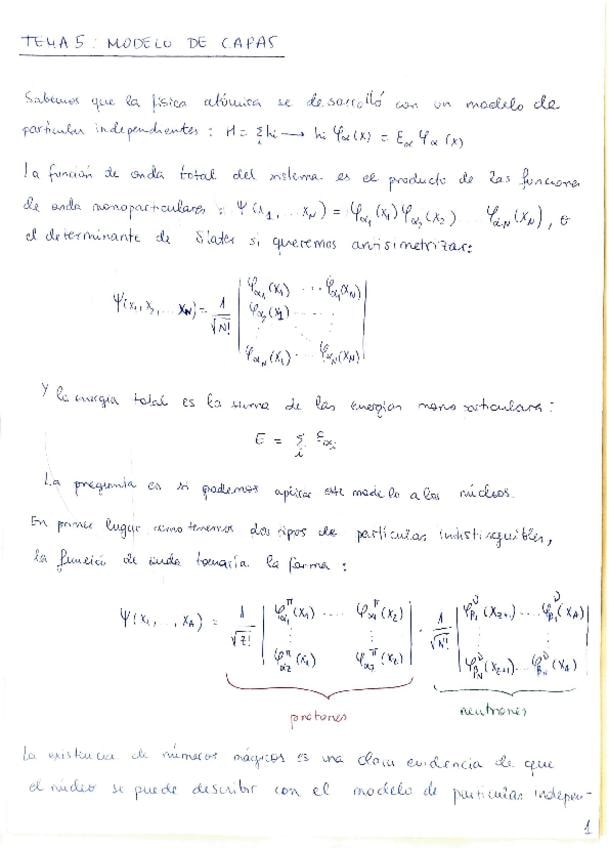 TEMA 5: MODELO DE CAPAS
Sabemos que la física atómica se desarrolló con un modelo de
particular independientes : H = Σ_i hi → hi φ_α(x) = E_α φ_α(x)
La función de onda total del sistema es el producto de las funciones
de onda monoparticulares : Ψ(x_1, ... x_N) = φ_α1(x_1) φ_α2(x_2) ... φ_αN(x_N), o
el determinante de Slater si queremos antisimetrizar:
Ψ(x_1, x_2, ... x_N) = 1/√N! | φ_α1(x_1) ... φ_α1(x_N)
φ_α2(x_1) ......
φ_αN(x_1) ... φ_αN(x_N) |
Y la energía total es la suma de las energías monoparticulares:
E = Σ_i ε_αi
La pregunta es si podemos aplicar este modelo a los núcleos.
En primer lugar como tenemos dos tipos de partículas indistinguibles,
la función de onda tomaría la forma :
Ψ(x_1, ..., x_A) = 1/√Z! | φ^π_α1(x_1) .... φ^π_α1(x_Z) | · 1/√N! | φ^ν_β1(x_Z+1) ... φ^ν_β1(x_A) |
| φ^π_αZ(x_1) ... φ^π_αZ(x_Z) | | φ^ν_βN(x_Z+1) ... φ^ν_βN(x_A) |
protones neutrones
La existencia de números mágicos es una clara evidencia de que
el núcleo se puede describir con el modelo de particular indepen-
1